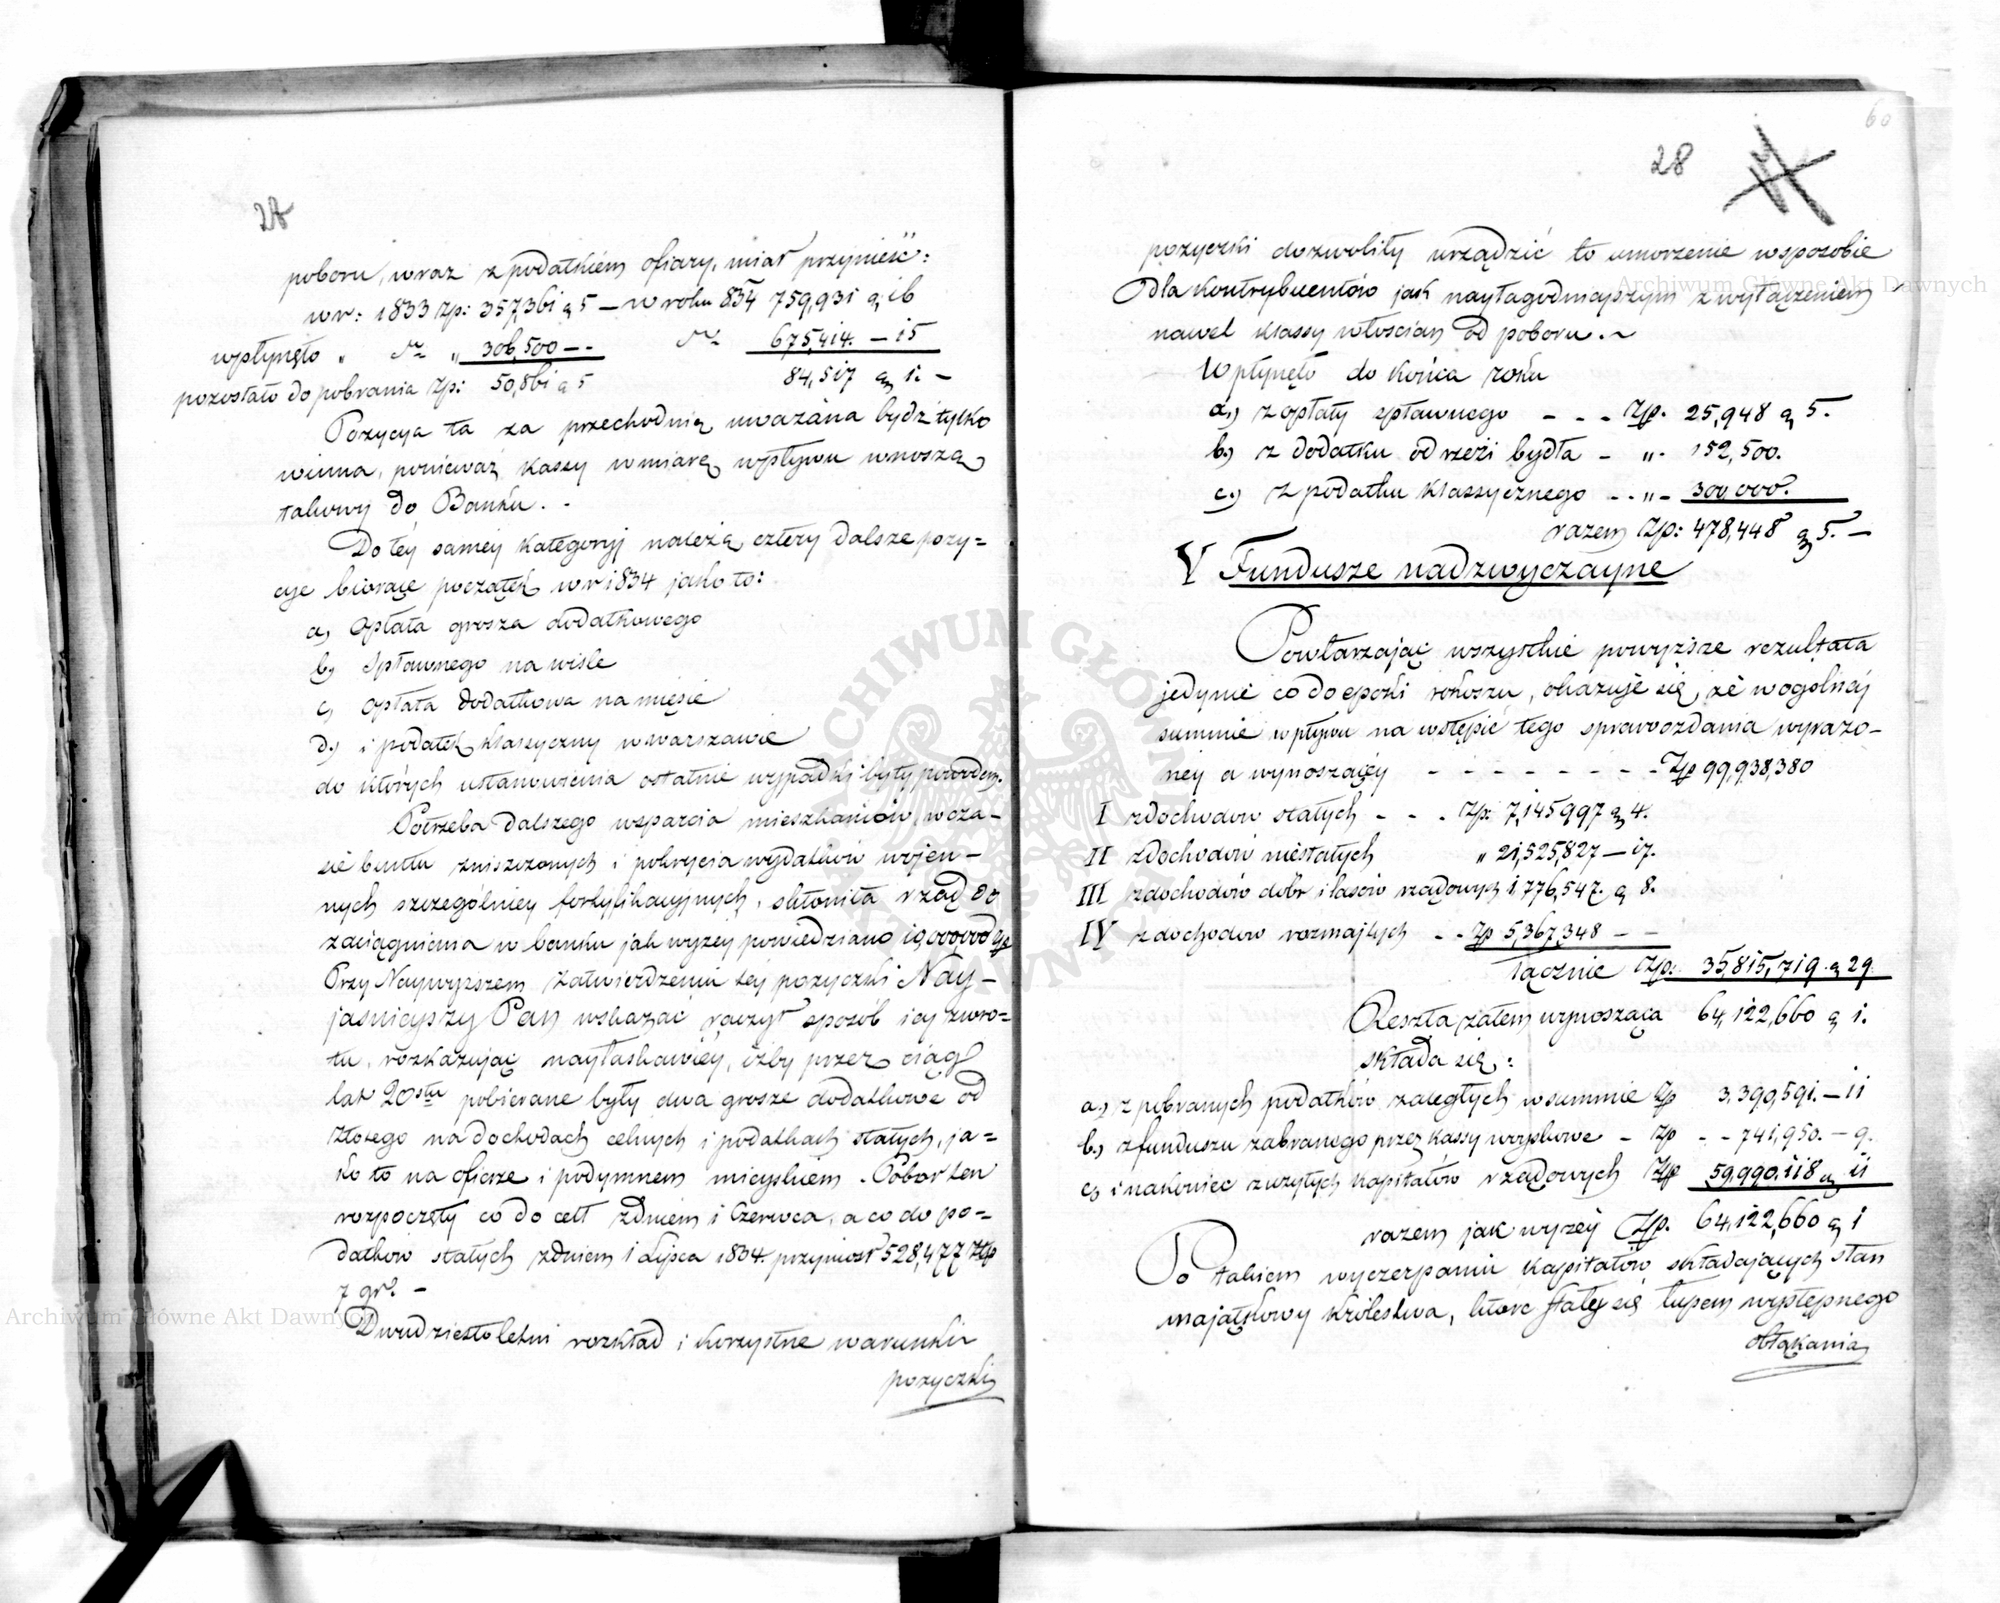 28
poboru, wraz z podatkiem ofiary, miał przynieść:
w r: 1833 Zp: 357,361 g 5 — w roku 834 759,931 g 16
wpłynęło " dto " 306,500 – - dto 675,414. — 15
pozostało do pobrania Zp: 50,861 g 5 84,517 g 1. –
Pozycya ta za przechodnią uważana bydź tylko
winna, ponieważ kassy w miarę wpływu wnoszą
takowy do Banku. -
Do tey samey kategoryj należą cztery dalsze pozy=
cye biorące początek w r 1834 jako to:
a, opłata grosza dodatkowego
b, spławnego na wiśle
c, opłata dodatkowa na mięsie
d, i podatek klassyczny w warszawie
do których ustanowienia ostatnie wypadki były powodem.
Potrzeba dalszego wsparcia mieszkańców, w cza–
sie buntu zniszczonych i pokrycia wydatków wojen–
nych szczególniey fortyfikacyjnych, skłoniła rząd do
zaciągnienia w banku jak wyżey powiedziano 10,000,000 Zp
Przy Naywyższem zatwierdzeniu tey pożyczki Nay–
jaśnieyszy Pan wskazać raczył sposób iey zwro=
tu, rozkazując nayłaskawiey, iżby przez ciąg
lat 20stu pobierane były dwa grosze dodatkowe od
złotego na dochodach celnych i podatkach stałych, ja=
ko to na ofierze i podymnem mieyskiem. Pobór ten
rozpoczęty co do ceł z dniem 1 Czerwca, a co do po=
datków stałych z dniem 1 Lipca 1834. przyniosł 528,477 złp
7 gr. –
Dwudziestoletni rozkład i korzystne warunki
pożyczki
60
28
pożyczki dozwoliły urządzić to umorzenie w sposobie
dla kontrybuentów jak nayłagodniejszym z wyłączeniem
nawet klassy włościan od poboru. ~
Wpłynęło do końca roku
a,) z opłaty spławnego - - - Zp. 25,948 g 5.
b,) z dodatku od rzezi bydła - " - 152,500.
c,) z podatku klassycznego - - " - 300,000.
razem Zp: 478,448 g 5. –
V Fundusze nadzwyczayne
Powtarzając wszystkie powyższe rezultata
jedynie co do epoki rokoszu, okazuje się, że w ogolney
summie wpływu na wstępie tego sprawozdania wyrażo–
ney a wynoszącey - - - - - - - Zp 99,938,380
I z dochodow stałych - - - Zp: 7,145,997 g 4.
II z dochodów niestałych " 21,525,827 — 17.
III z dochodów dóbr i lasów rządowych 1,776,547. g 8.
IV z dochodow rozmaitych - - Zp 5,367,348 – –
łącznie Zp: 35,815,719. g 29.
Reszta zatem wynosząca 64,122,660 g 1.
składa się:
a,) z pobranych podatków zaległych w summie Zp 3,390,591. — 11
b,) z funduszu zabranego przez kassy woyskowe - Zp - - 741,950. — 9.
c, i nakoniec z użytych kapitałów rządowych Zp 59,990,118 g 11
razem jak wyżey Zp. 64,122,660 g 1
Po takiem wyczerpaniu kapitałów składających stan
majątkowy Królestwa, które stały się łupem występnego
obłąkania
ARCHIWUM GŁÓWNE AKT DAWNYCH
Archiwum Główne Akt Dawnych
Archiwum Główne Akt Dawnych